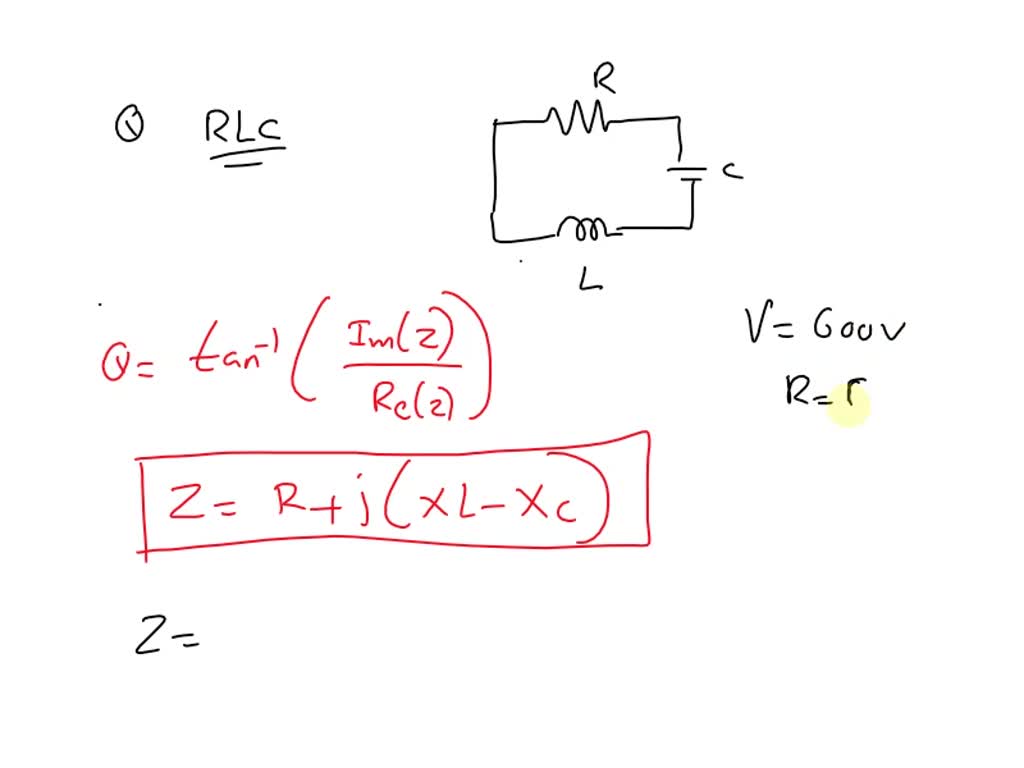 Q RLC
R
C
L
Q = tan⁻¹ ( Im(z) / Re(z) )
V = 600v
R = 
Z = R + j ( XL - Xc )
Z =